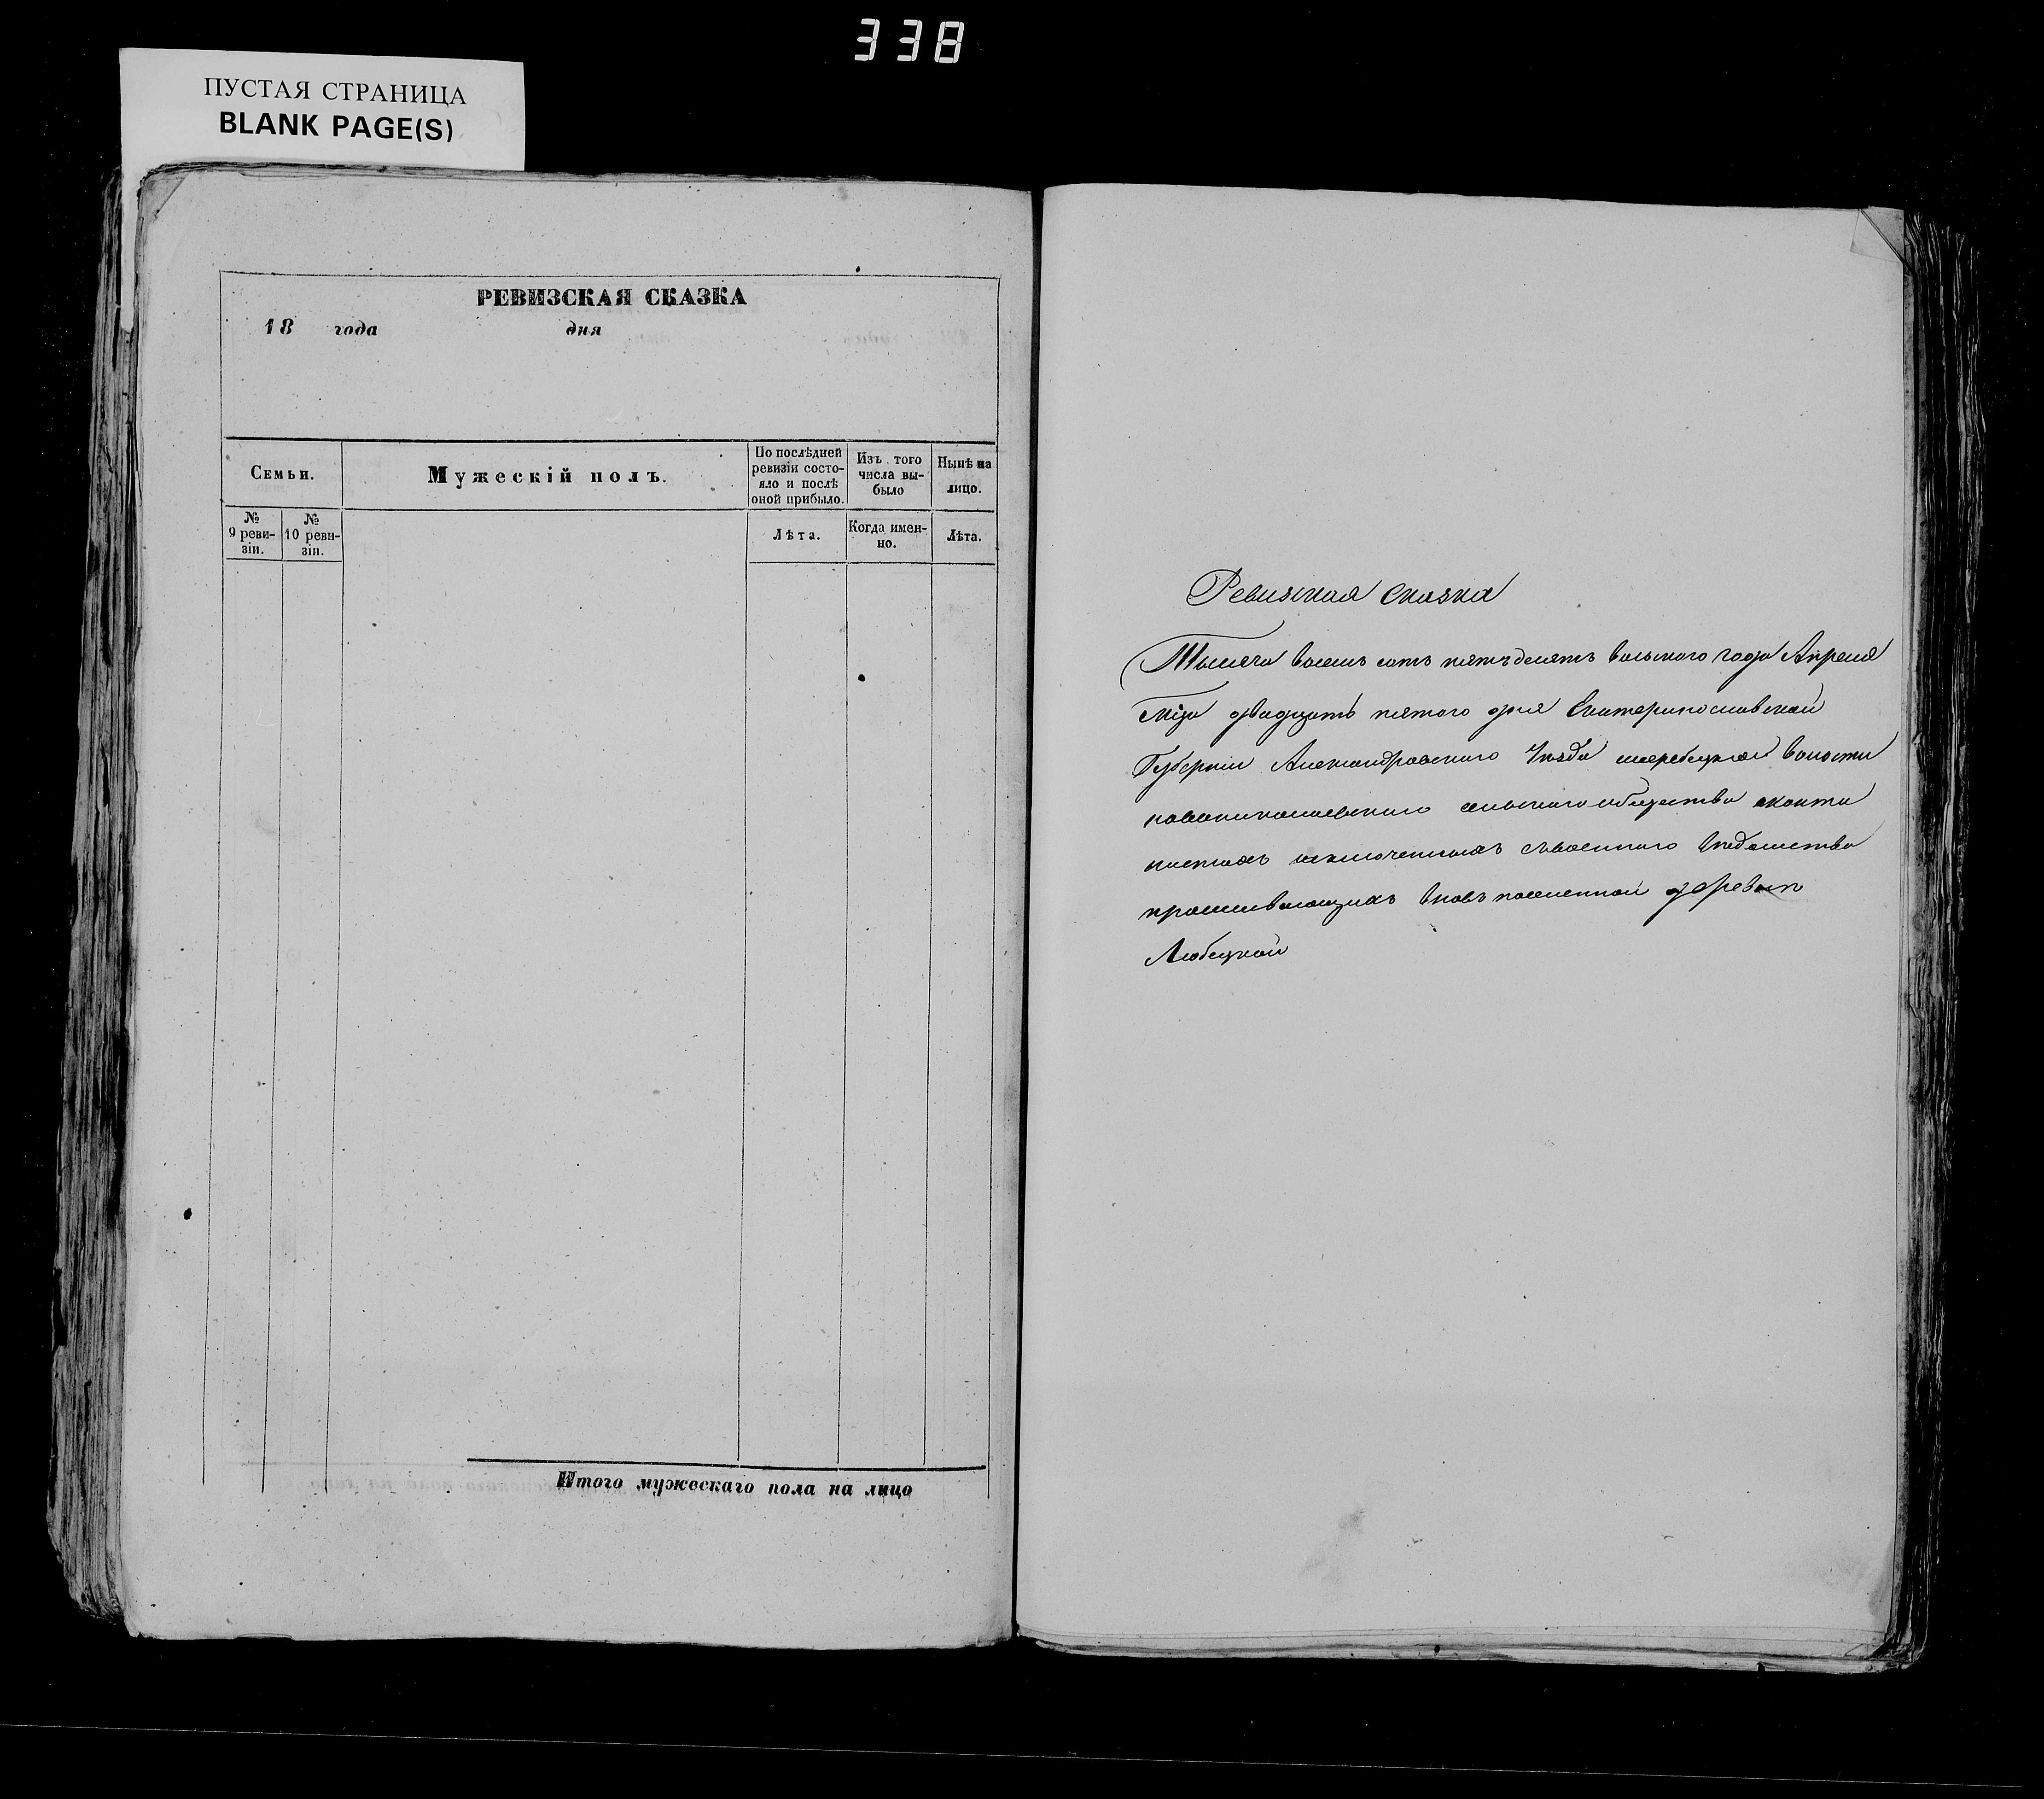 338
ПУСТАЯ СТРАНИЦА
BLANK PAGE(S)
РЕВИЗСКАЯ СКАЗКА
18 года дня
Семьи.
Мужескій полъ.
По послѣдней
ревизіи состо-
яло и послѣ
оной прибыло.
Изъ того
числа вы-
было
Нынѣ на
лицо.
№
9 реви-
зіи.
№
10 реви-
зіи.
Лѣта.
Когда имен-
но.
Лѣта.
Итого мужескаго пола на лицо
Ревизская сказка
Тысяча восемь сотъ пятъдесятъ восьмого года Апреля
Мца двадцать пятого дня Екатеринославской
Губерніи Александровского Уѣзда жеребецкой волости
новониколаевского сельского общества оканто
нистахъ исключенныхъ съвоенного вѣдомства
проживающихъ вновь поселенной деревни
Любецкой